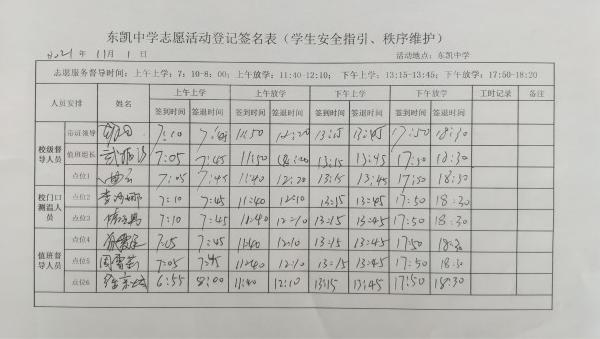 东凯中学志愿活动登记签名表（学生安全指引、秩序维护）
2021 年 11 月 1 日 活动地点：东凯中学
志愿服务督导时间：上午上学：7：10-8：00；上午放学：11:40-12:10； 下午上学：13:15-13:45；下午放学：17:50-18:20
人员安排 姓名 上午上学 上午放学 下午上学 下午放学 工时记录 备注
签到时间 签退时间 签到时间 签退时间 签到时间 签退时间 签到时间 签退时间
校级督导人员 带班领导 7:10 11:50 12:20 13:15 13:45 17:50 18:30
值班组长 7:05 7:45 11:50 13:15 13:45 17:50 18:30
点位1 7:05 7:45 11:40 12:20 13:15 13:45 17:50 18:30
校门口测温人员 点位2 7:10 7:45 11:40 12:10 13:15 13:45 17:50 18:30
点位3 7:10 7:45 11:40 12:10 13:15 13:45 17:50 18:30
值班督导人员 点位4 7:45 11:40 12:10 13:15 13:45 17:50 18:30
点位5 7:05 7:45 11:40 12:10 13:15 13:45 17:50 18:30
点位6 6:55 8:00 11:40 12:10 13:15 13:45 17:50 18:30